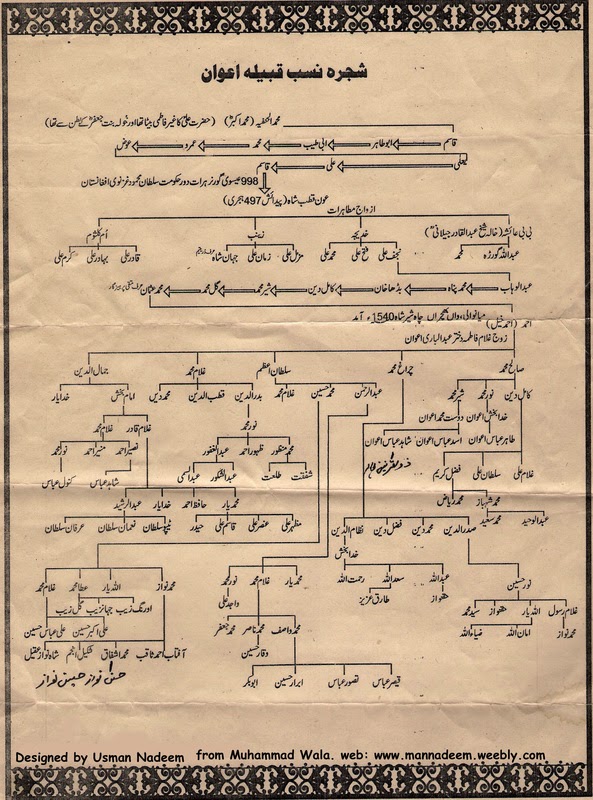 شجره نسب قبیله اعوان
محمد الحنفیہ (محمد اکبر) (حضرت علیؓ کا غیر فاطمی بیٹا تھا اور خولہ بنت جعفر کے بطن سے تھا)
قاسم ابو طاہر ابی طیب محمد عمرو عوض
یعلی علی قاسم
998 عیسوی گورنر ہرات دور حکومت سلطان محمود غزنوی افغانستان
عون قطب شاہ (پیدائش 497 ہجری)
ازواج مطاہرات
بی بی عائشہ (خالہ شیخ عبدالقادر جیلانی) خدیجہ زینب ام کلثوم
عبداللہ گورڑہ محمد نجف علی فتح علی محمد علی مزمل علی زمان علی جہان شاہ نادر علی بہادر علی کرم علی
عبدالوہاب محمد پناہ بڈھا خان کامل دین شیر محمد گل محمد محمد عثمان
احمد (احمد خیل) میانوالی، واں بھچراں چاہ شیر شاہ 1540ء آمد
زوج غلام فاطمہ دختر عبدالباری اعوان
صالح محمد چراغ محمد سلطان اعظم غلام محمد جمال الدین
کامل دین نور محمد شیر محمد عبدالرحمن محمد حسین غلام محمد بدر الدین قطب الدین محمد دین امام بخش خدایار
خدا بخش اعوان دوست محمد اعوان نور محمد غلام قادر غلام محمد
طاہر عباس اعوان اسد عباس اعوان شاہد عباس اعوان محمد منظور ظہور احمد عبدالغفور نصیر احمد منیر احمد نور محمد
غلام علی سلطان علی فضل کریم شفقت طلعت عبدالشکور شاہد عباس کنول عباس
محمد شہباز محمد ریاض محمد یار حافظ احمد خدایار عبدالرشید
عبدالوحید محمد سعید صدر الدین محمد دین فضل دین نظام الدین مظہر علی عنصر علی قاسم علی حیدر ٹیپو سلطان نعمان سلطان عرفان سلطان
خدا بخش
نور حسین عبداللہ سعد اللہ رحمت اللہ محمد یار غلام محمد نور محمد محمد نواز اللہ یار عطا محمد غلام محمد
غلام رسول اللہ یار حقنواز سید محمد حقنواز طارق عزیز واجد علی اورنگ زیب جہانزیب گل زیب
محمد نواز امان اللہ ضیاء اللہ محمد واصف محمد ناصر محمد جعفر علی اکبر حسین علی عباس حسین
وقار حسین آفتاب احمد ثاقب محمد اشفاق شکیل انجم شاہ نواز عقیل
قیصر عباس تصور عباس ابرار حسین ابوبکر حسن نواز حسین نواز
Designed by Usman Nadeem from Muhammad Wala. web: www.mannadeem.weebly.com